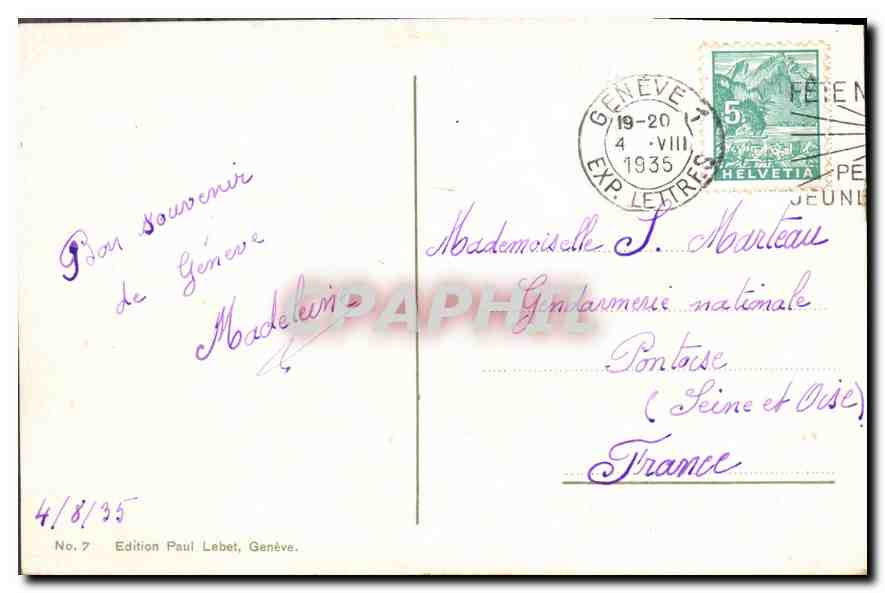 Bon souvenir
de Genève
Madeleine
4/8/35
No. 7 Edition Paul Lebet, Genève.
GENÈVE 1
19-20
4 .VIII
1935
EXP. LETTRES
5
HELVETIA
FÊTE N
PE
JEUNE
Mademoiselle S. Marteau
Gendarmerie nationale
Pontoise
(Seine et Oise)
France
CPAPHIL